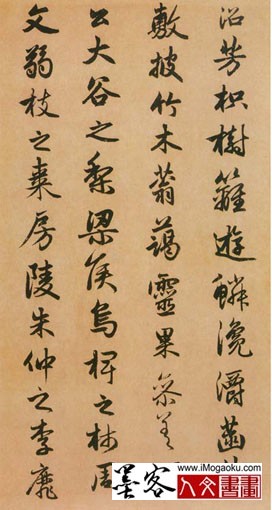 沼芳枳樹籬遊鱗瀺灂菡
敷披竹木蓊藹靈果參差
公大谷之梨梁侯烏椑之柿周
文弱枝之棗房陵朱仲之李靡
www.iMogaoku.com
墨客 人文書畫